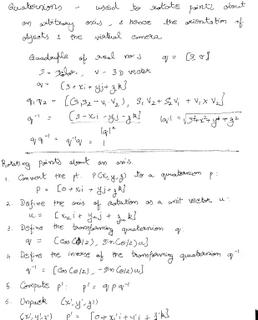 Quaternions - used to rotate points about
an arbitrary axis, & hence the orientation of
objects & the virtual camera.
Quadruple of real no.s q = [s, v]
s = scalar, v - 3D vector
q = [s + xi + yj + zk]
q1 q2 = [(s1 s2 - v1.v2), s1 v2 + s2 v1 + v1 x v2]
q^-1 = [s - xi - yj - zk] / |q|^2 |q| = √s²+x²+y²+z²
q q^-1 = q^-1 q = 1
Rotating points about an axis.
1. Convert the pt. P(x, y, z) to a quaternion p:
p = [0 + xi + yj + zk]
2. Define the axis of rotation as a unit vector u:
u = [xu i + yu j + zu k]
3. Define the transforming quaternion q:
q = [cos(θ/2), sin(θ/2) u]
4. Define the inverse of the transforming quaternion q^-1
q^-1 = [cos(θ/2), -sin(θ/2) u]
5. Compute p': p' = q p q^-1
6. Unpack (x', y', z')
(x', y', z') p' = [0 + x'i + y'j + z'k]